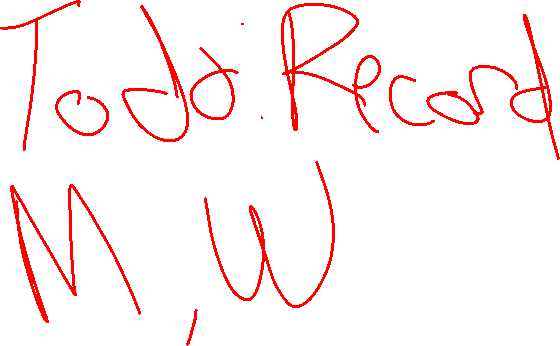 Todo: Record
M, W